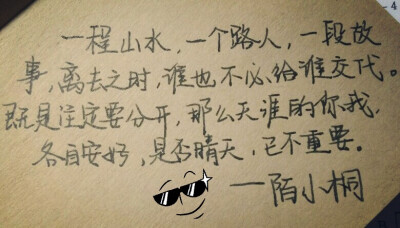 一程山水，一个路人，一段故
事，离去之时，谁也不必给谁交代。
既是注定要分开，那么天涯的你我，
各自安好，是否晴天，已不重要。
——陌小桐